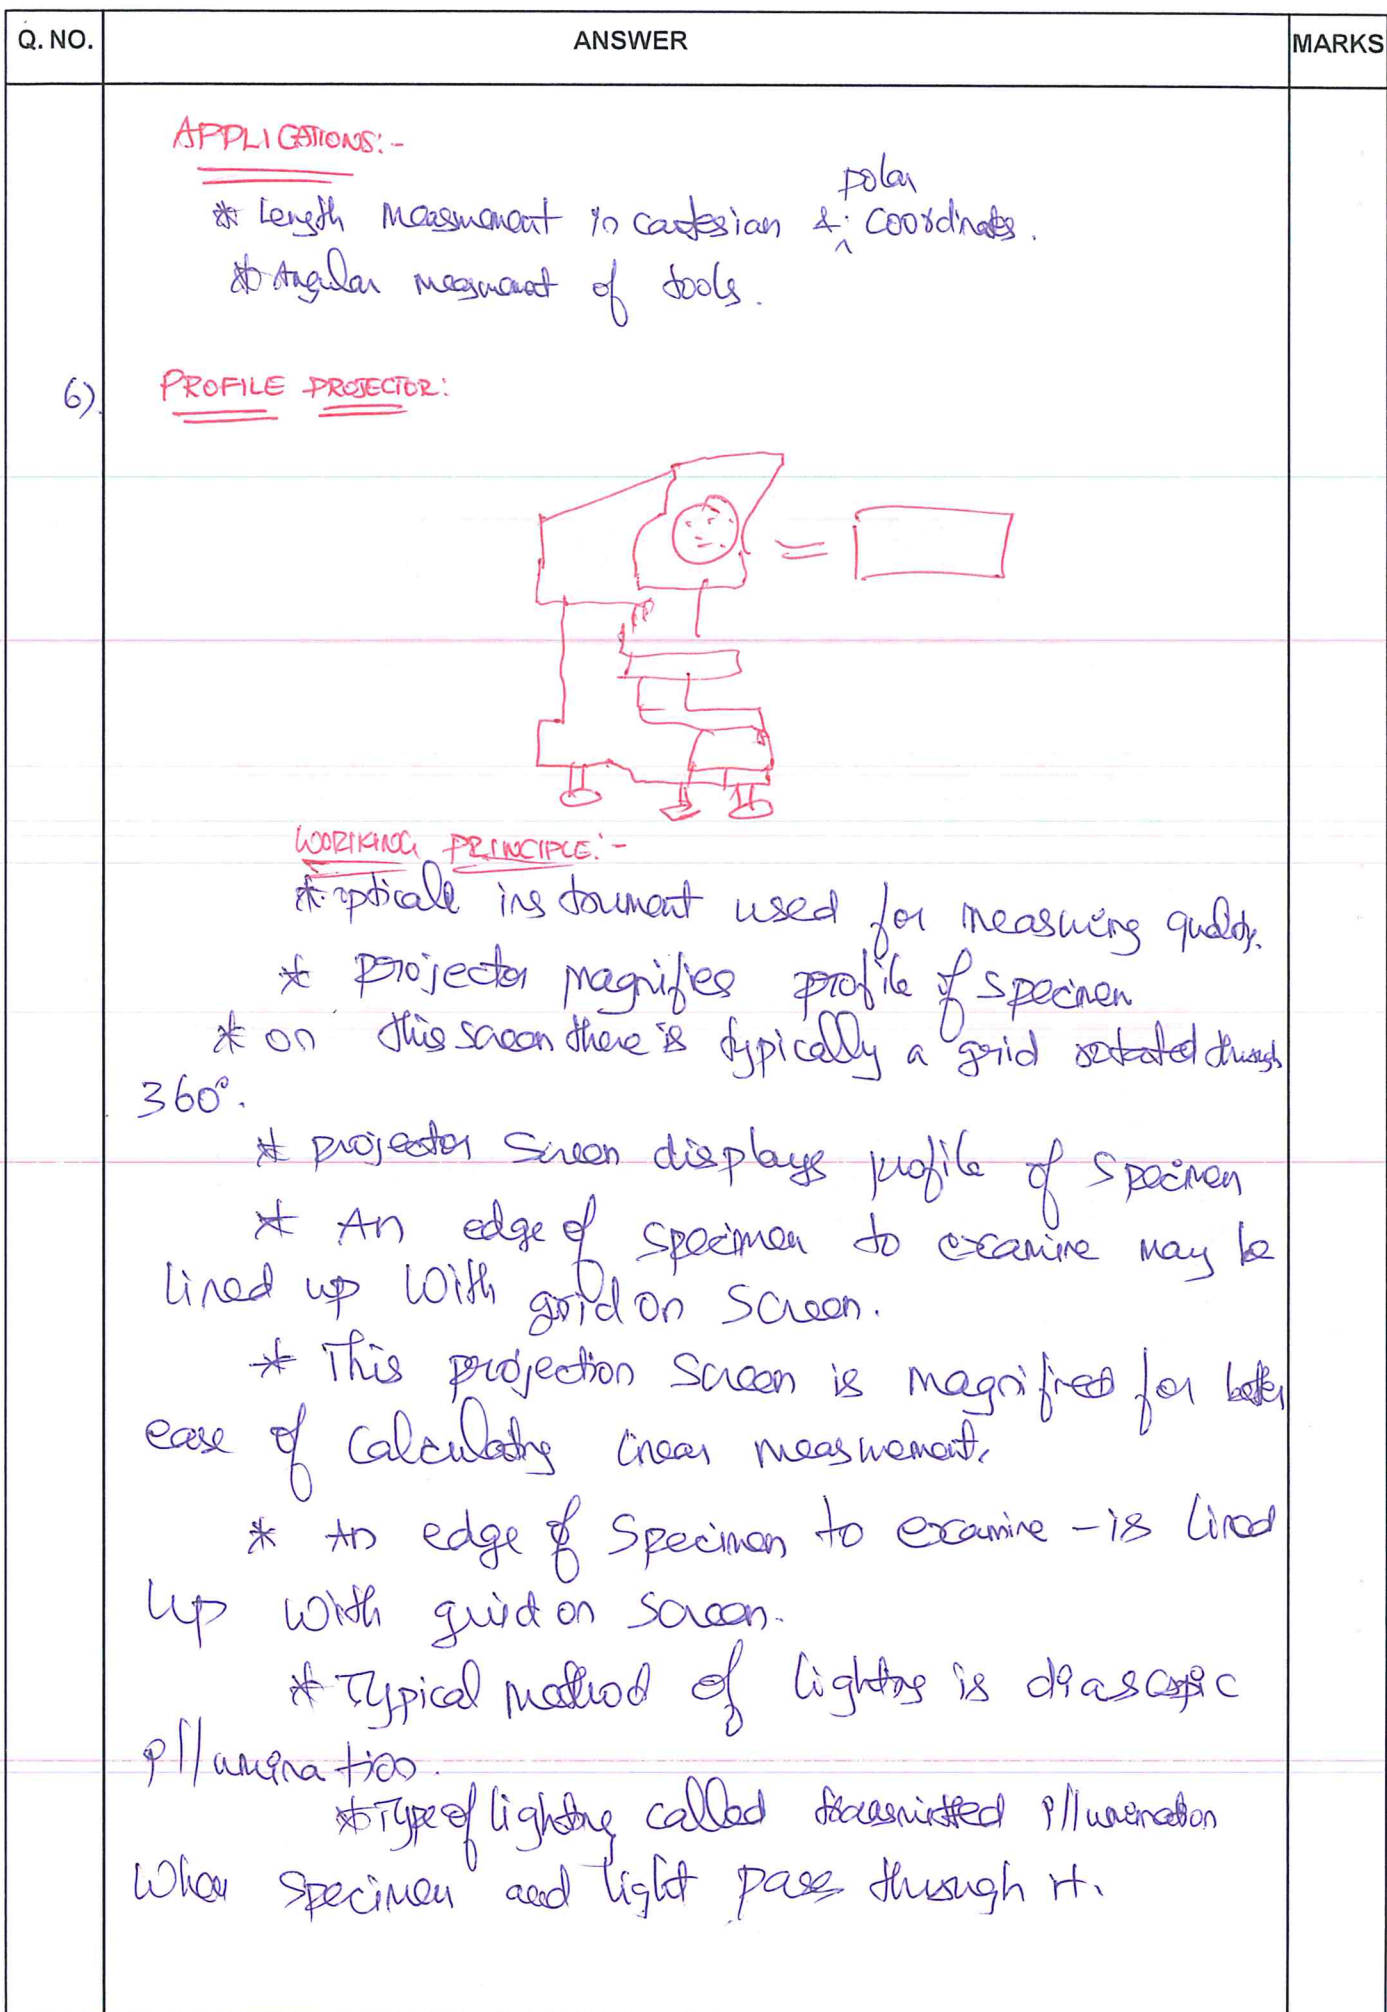 Q. NO. ANSWER MARKS
APPLICATIONS:-
polar
* Length measurement in cartesian & ^ coordinates.
* Angular measurement of tools.
6). PROFILE PROJECTOR:
WORKING PRINCIPLE:-
* opticale instrument used for measuring quality.
* projector magnifies profile of specimen
* on this screen there is typically a grid rotated through
360°.
* projector screen displays profile of specimen
* An edge of specimen to examine may be
lined up with grid on screen.
* This projection screen is magnified for better
ease of calculating linear measurement.
* An edge of specimen to examine - is lined
up with grid on screen.
* Typical method of lighting is diascopic
illumination.
* Type of lighting called transmitted illumination
when specimen and light pass through it.